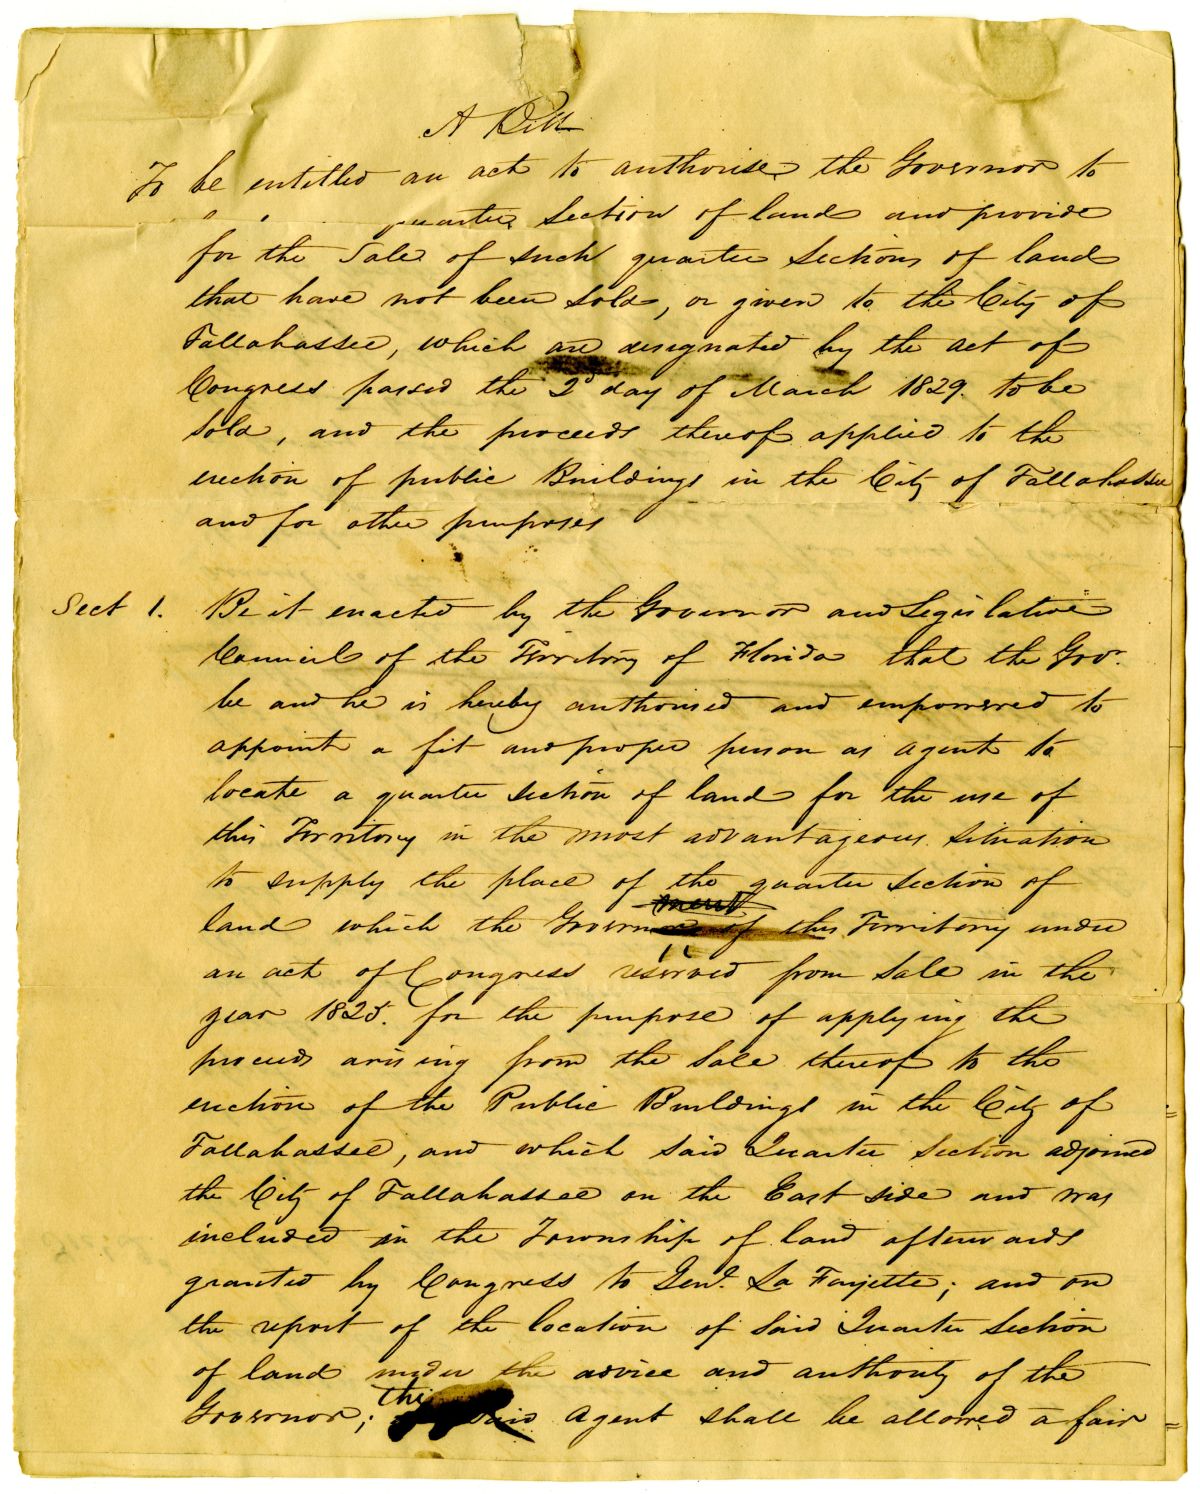 A Bill
To be entitled an act to authorise the Governor to
quarter Section of land and provide
for the Sale of such quarter Sections of land
that have not been Sold, or given to the City of
Tallahassee, which are designated by the act of
Congress passed the 2d day of March 1829. to be
Sold, and the proceeds thereof applied to the
erection of public Buildings in the City of Tallahassee
and for other purposes
Sect 1. Be it enacted by the Governor and Legislative
Council of the Territory of Florida that the Govr.
be and he is hereby authorised and empowered to
appoint a fit and proper person as agent to
locate a quarter Section of land for the use of
this Territory in the most advantageous Situation
to supply the place of the quarter Section of
ment
land which the Governor of this Territory under
an act of Congress reserved from Sale in the
year 1825. for the purpose of applying the
proceeds arising from the Sale thereof to the
erection of the Public Buildings in the City of
Tallahassee, and which said Quarter Section adjoined
the City of Tallahassee on the East side and was
included in the Township of land afterwards
granted by Congress to Genl. La Fayette; and on
the report of the location of Said Quarter Section
of land under the advice and authority of the
the
Governor; said Agent shall be allowed a fair